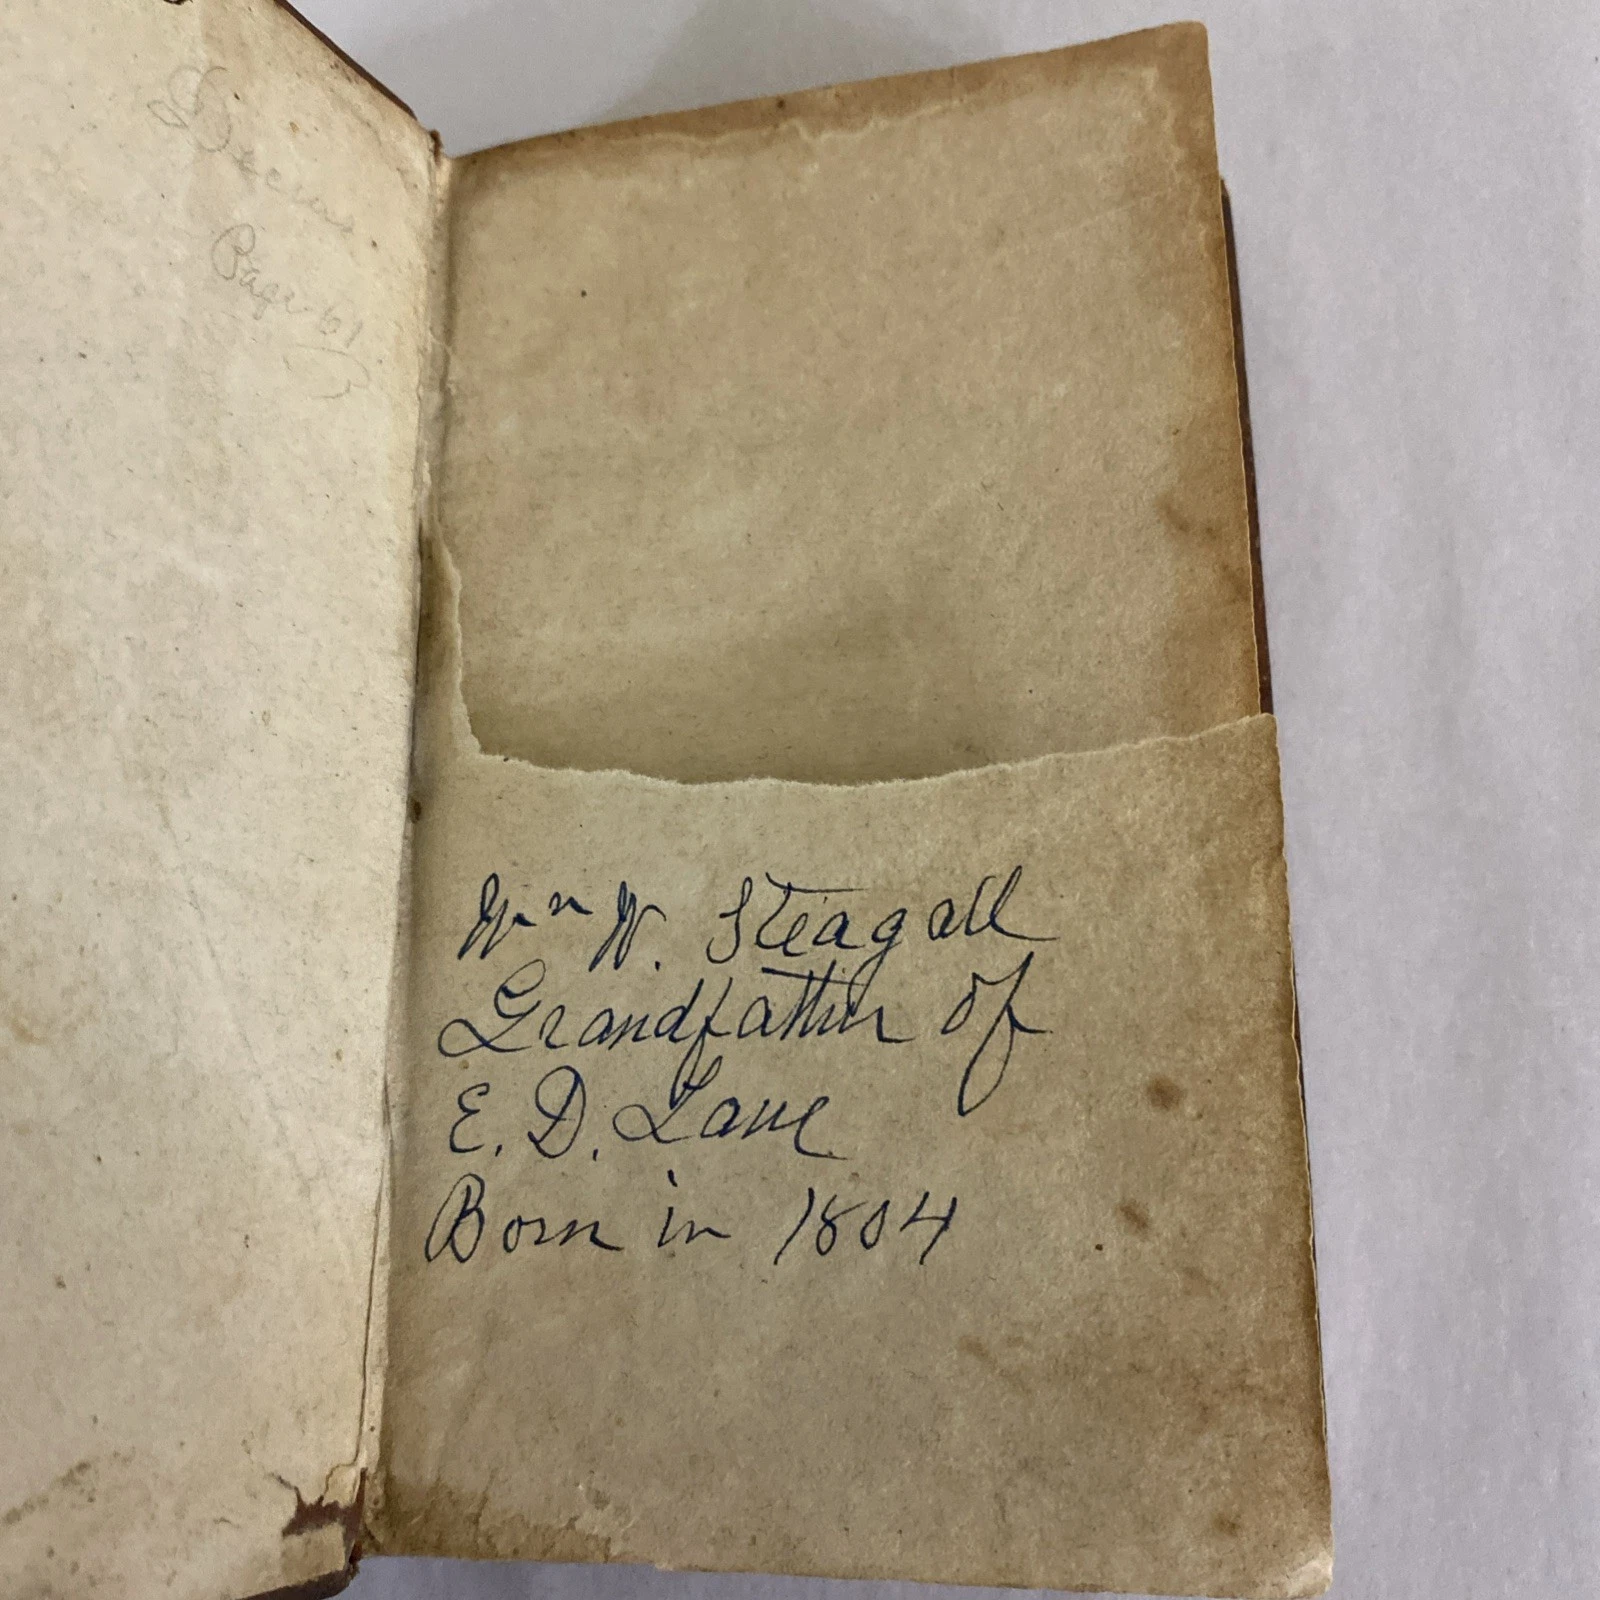 Page 61
Wm W. Steagall
Grandfather of
E. D. Lane
Born in 1804